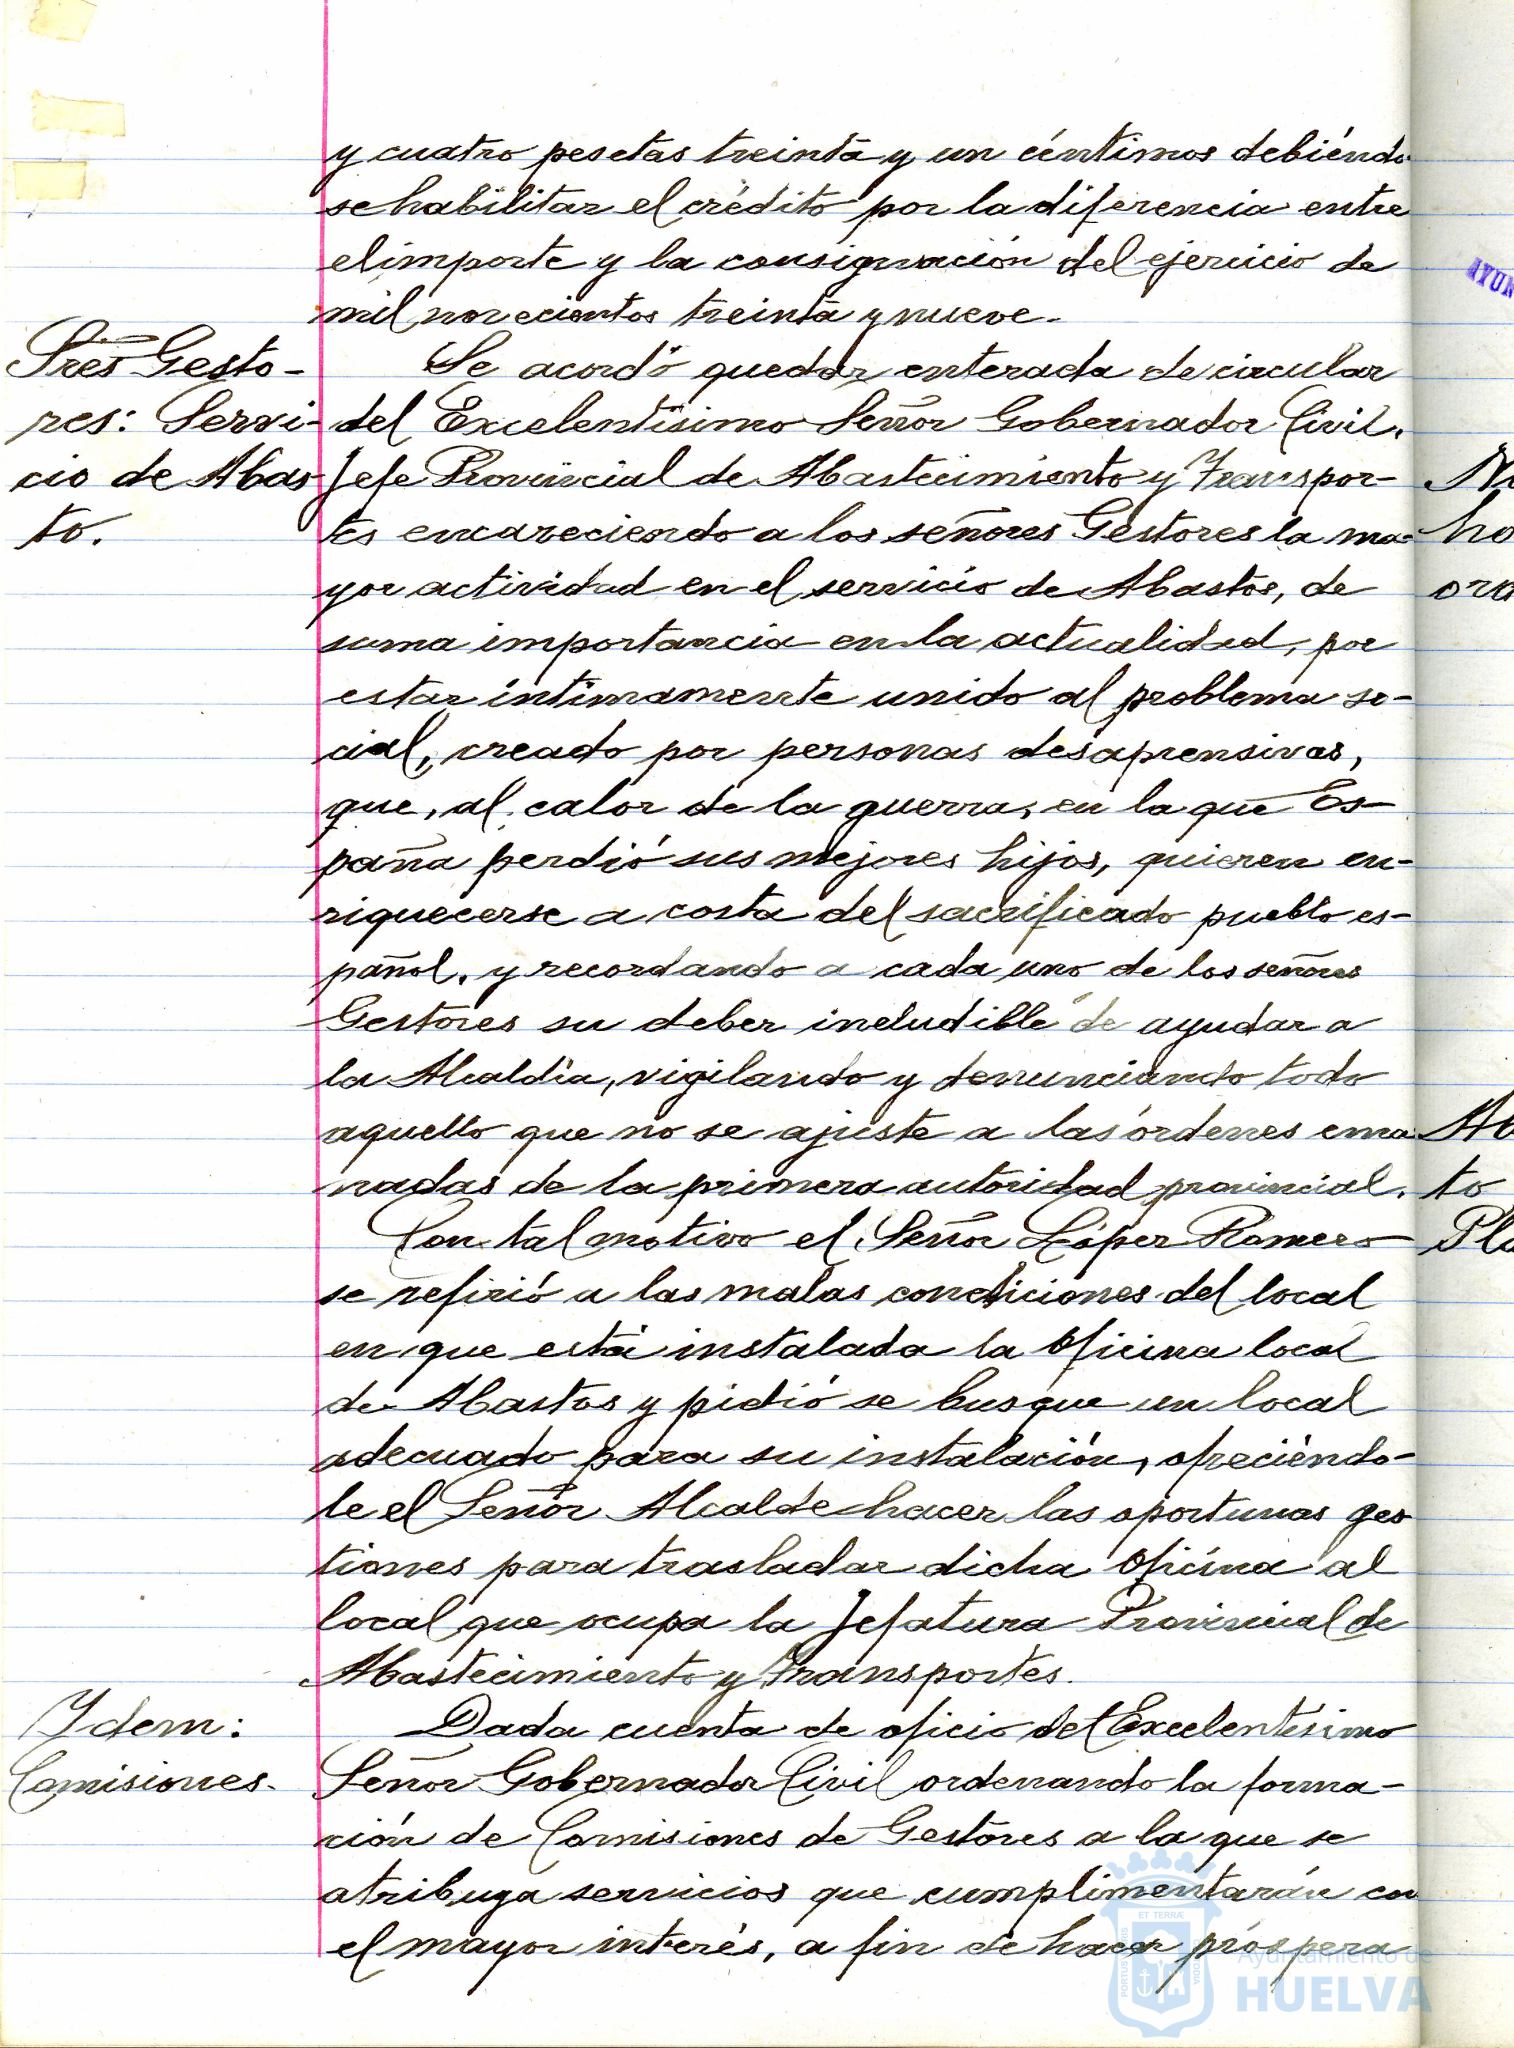 y cuatro pesetas treinta y un céntimos debiéndo
se habilitar el crédito por la diferencia entre
el importe y la consignación del ejercicio de
mil novecientos treinta y nueve.
Sres Gesto-
res: Servi-
cio de Abas
to.
Se acordó quedar enterada de circular
del Excelentísimo Señor Gobernador Civil.
Jefe Provincial de Abastecimiento y Transpor-
tes encareciendo a los señores Gestores la ma-
yor actividad en el servicio de Abastos, de
suma importancia en la actualidad, por
estar íntimamente unido al problema so-
cial, creado por personas desaprensivas,
que, al calor de la guerra, en la que Es-
paña perdió sus mejores hijos, quieren en-
riquecerse a costa del sacrificado pueblo es-
pañol, y recordando a cada uno de los señores
Gestores su deber ineludible de ayudar a
la Alcaldía, vigilando y denunciando todo
aquello que no se ajuste a las órdenes ema
nadas de la primera autoridad provincial.
Con tal motivo el Señor López Romero
se refirió a las malas condiciones del local
en que está instalada la Oficina local
de Abastos y pidió se busque un local
adecuado para su instalación, ofreciéndo-
le el Señor Alcalde hacer las oportunas ges
tiones para trasladar dicha Oficina al
local que ocupa la Jefatura Provincial de
Abastecimiento y Transportes.
Ydem:
Comisiones.
Dada cuenta de oficio del Excelentísimo
Señor Gobernador Civil ordenando la forma-
ción de Comisiones de Gestores a la que se
atribuya servicios que cumplimentarán con
el mayor interés, a fin de hacer próspera
AYUN
ho
ora
to
Pla
ET TERRÆ
Ayuntamiento de
HUELVA